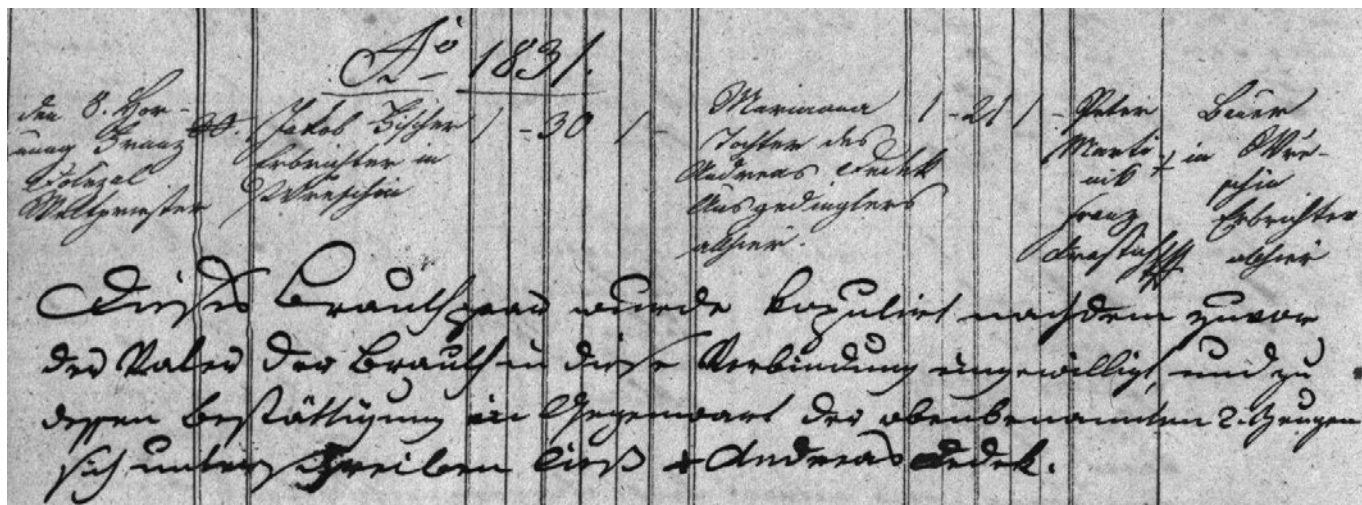 Aō 1831.
den 8. Hor-
nung Franz
Dolezal
Weltpriester
Jakob Fischer
Erbrichter in
Wreschin
1 - 30 1 -
Marianna
Tochter des
Andreas Dedek
Ausgedinglers
alhier.
1 - 21 1 -
Peter
Marti-
nik +
Bauer
in Wre-
schin
Franz
Erbrichter
alhier
Dieses Brauthpaar wurde kopulirt nachdem zuvor
der Vater der Brauth in diese Verbindung eingewilligt, und zu
dessen Bestättigung in Gegenwart der obenbenannten 2. Zeugen
sich unterschreiben ließ + Andreas Dedek.